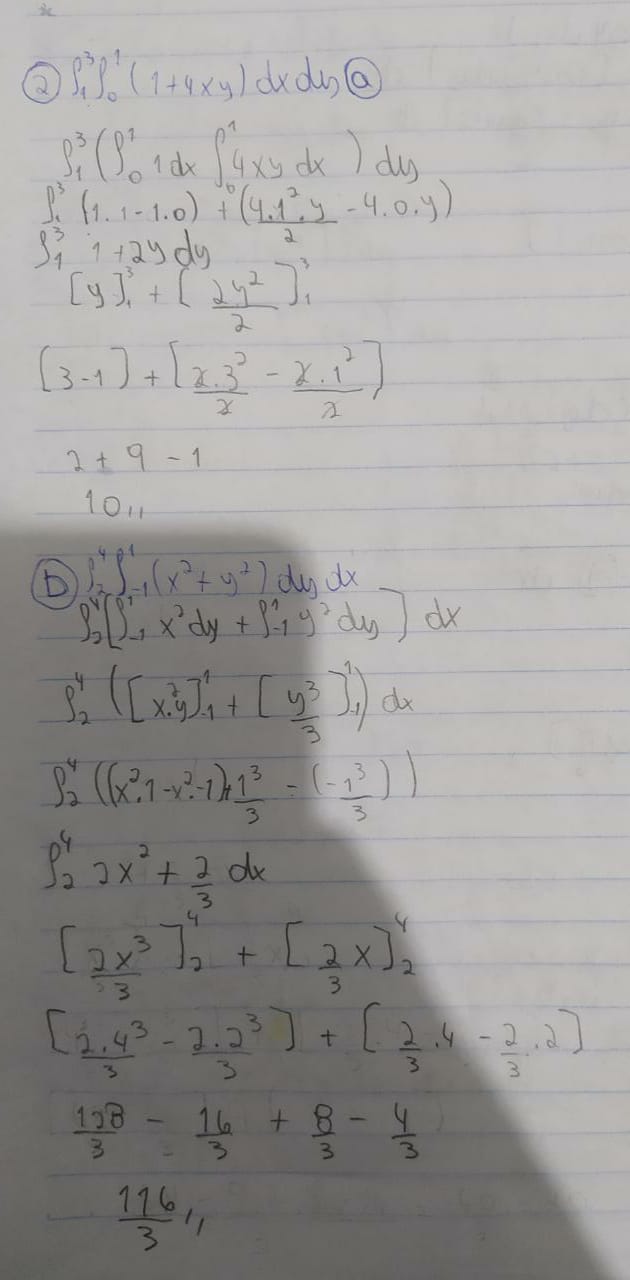 ② ∫₁³∫₀¹ (1+4xy) dxdy ⓐ
∫₁³ (∫₀¹ 1dx ∫₀¹ 4xy dx ) dy
∫₁³ (1.1-1.0) + (4.1².y/2 - 4.0.y)
∫₁³ 1+2y dy
[y]₁³ + [2y²/2]₁³
[3-1] + [2.3²/2 - 2.1²/2]
2 + 9 - 1
10,,
ⓑ ∫₂⁴∫₋₁¹ (x²+y²) dy dx
∫₂⁴[∫₋₁¹ x²dy + ∫₋₁¹ y²dy] dx
∫₂⁴ ([x².y]₋₁¹ + [y³/3]₋₁¹) dx
∫₂⁴ ((x².1-x².-1)+1³/3 - (-1³/3))
∫₂⁴ 2x² + 2/3 dx
[2x³/3]₂⁴ + [2/3 x]₂⁴
[2.4³/3 - 2.2³/3] + [2/3.4 - 2/3.2]
128/3 - 16/3 + 8/3 - 4/3
116/3,,